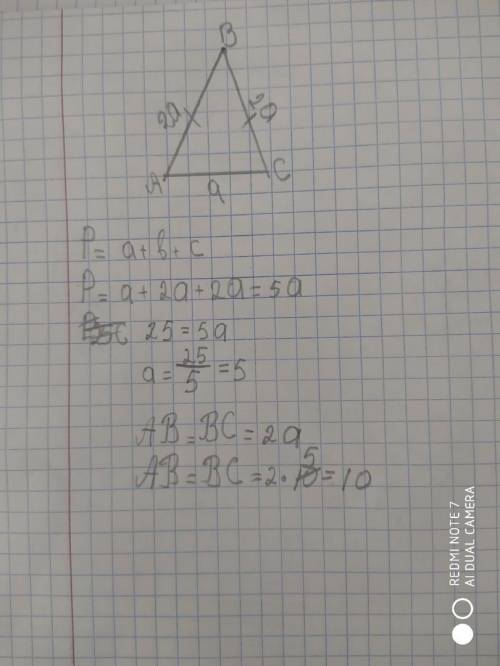 B
2a 2a
A C
a
P = a + b + c
P = a + 2a + 2a = 5a
25 = 5a
a = 25/5 = 5
AB = BC = 2a
AB = BC = 2 · 5 = 10
REDMI NOTE 7
AI DUAL CAMERA